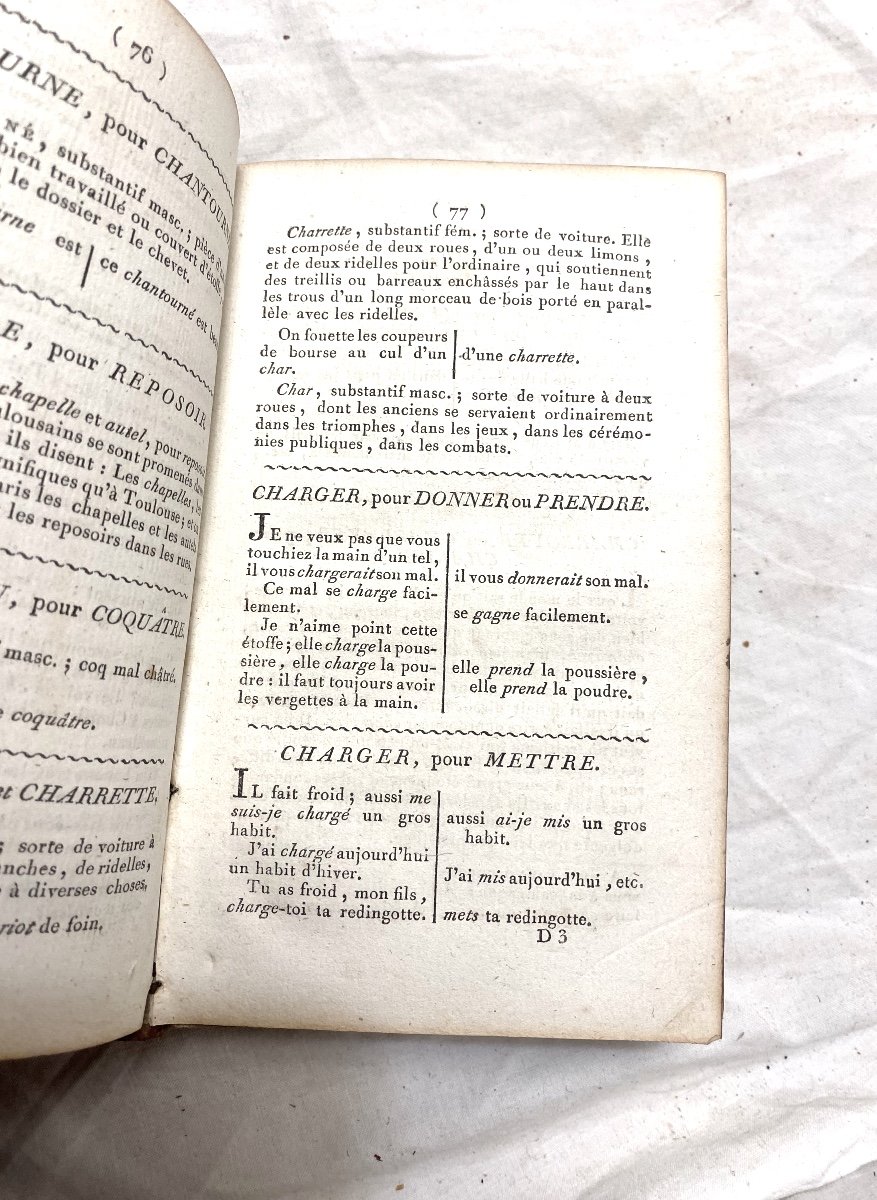 ( 76 )
URNE, pour CHANTOURN
NÉ, substantif masc.; pièce d'
bien travaillé ou couvert d'étoffe
le dossier et le chevet.
erne est
ce chantourné est
E, pour REPOSOIR
chapelle et autel, pour reposoir
ulousains se sont promenés dans
ils disent : Les chapelles,
nifiques qu'à Toulouse; et
ris les chapelles et les autels
les reposoirs dans les rues.
, pour COQUÂTRE.
masc. ; coq mal châtré.
coquâtre.
et CHARRETTE.
; sorte de voiture à
nches, de ridelles,
à diverses choses.
riot de foin.
( 77 )
Charrette, substantif fém. ; sorte de voiture. Elle
est composée de deux roues, d'un ou deux limons,
et de deux ridelles pour l'ordinaire, qui soutiennent
des treillis ou barreaux enchâssés par le haut dans
les trous d'un long morceau de bois porté en paral-
lèle avec les ridelles.
On fouette les coupeurs
de bourse au cul d'un
char.
d'une charrette.
Char, substantif masc. ; sorte de voiture à deux
roues, dont les anciens se servaient ordinairement
dans les triomphes, dans les jeux, dans les cérémo-
nies publiques, dans les combats.
CHARGER, pour DONNER ou PRENDRE.
JE ne veux pas que vous
touchiez la main d'un tel,
il vous chargerait son mal.
il vous donnerait son mal.
Ce mal se charge faci-
lement.
se gagne facilement.
Je n'aime point cette
étoffe ; elle charge la pous-
sière, elle charge la pou-
dre : il faut toujours avoir
les vergettes à la main.
elle prend la poussière,
elle prend la poudre.
CHARGER, pour METTRE.
IL fait froid ; aussi me
suis-je chargé un gros
habit.
aussi ai-je mis un gros
habit.
J'ai chargé aujourd'hui
un habit d'hiver.
J'ai mis aujourd'hui, etc.
Tu as froid, mon fils,
charge-toi ta redingotte.
mets ta redingotte.
D 3